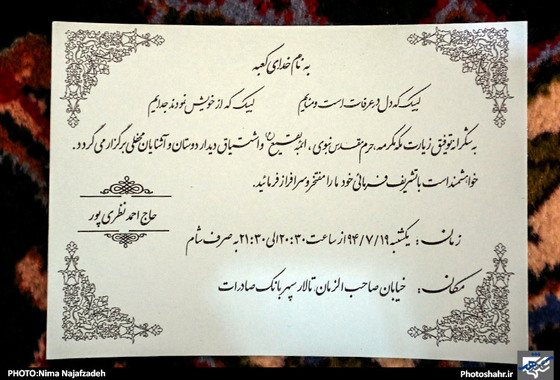 به نام خدای کعبه
لبیک که دل در عرفات است و منایم لبیک که از خویش نمودند جدایم
به شکرانه توفیق زیارت مکه مکرمه، حرم مقدس نبوی، ائمه بقیع(ع) و اشتیاق دیدار دوستان و آشنایان محفلی برگزار می گردد.
خواهشمند است با تشریف فرمائی خود ما را مفتخر و سرافراز فرمائید.
حاج احمد نظری پور
زمان: یکشنبه ۹۴/۷/۱۹ از ساعت ۲۰:۳۰ الی ۲۱:۳۰ به صرف شام
مکان: خیابان صاحب الزمان تالار سپهر بانک صادرات
PHOTO:Nima Najafzadeh
Photoshahr.ir